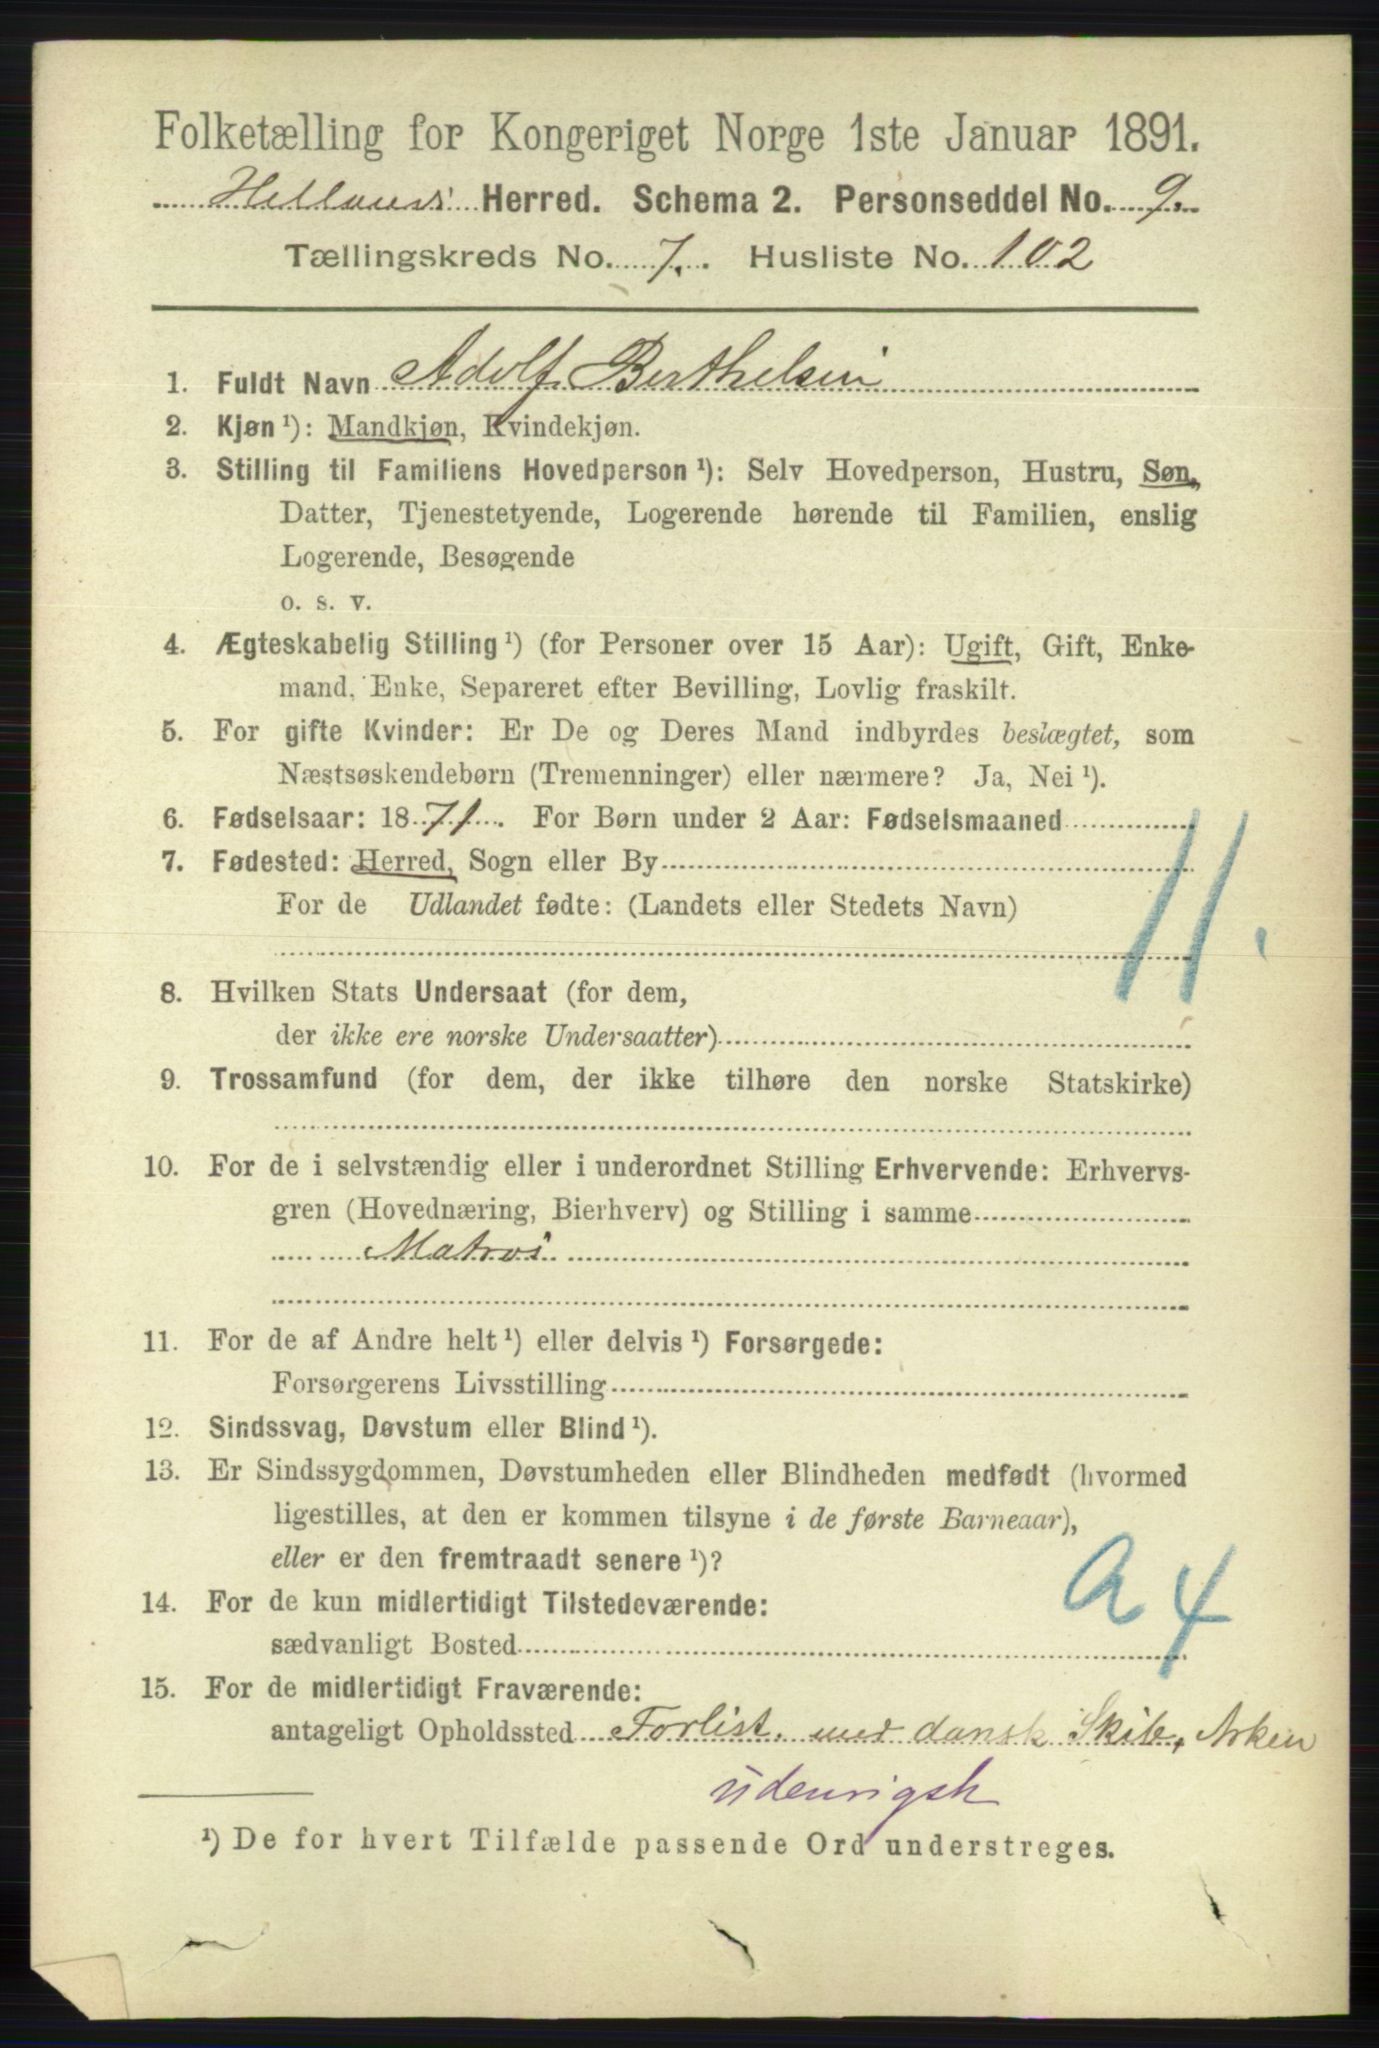 Folketælling for Kongeriget Norge 1ste Januar 1891.
Hetlands Herred. Schema 2. Personseddel No. 9.
Tællingskreds No. 7. Husliste No. 102
1. Fuldt Navn Adolf Berthelsen
2. Kjøn ¹): Mandkjøn, Kvindekjøn.
3. Stilling til Familiens Hovedperson ¹): Selv Hovedperson, Hustru, Søn,
Datter, Tjenestetyende, Logerende hørende til Familien, enslig
Logerende, Besøgende
o. s. v.
4. Ægteskabelig Stilling ¹) (for Personer over 15 Aar): Ugift, Gift, Enke-
mand, Enke, Separeret efter Bevilling, Lovlig fraskilt.
5. For gifte Kvinder: Er De og Deres Mand indbyrdes beslægtet, som
Næstsøskendebørn (Tremenninger) eller nærmere? Ja, Nei ¹).
6. Fødselsaar: 1871. For Børn under 2 Aar: Fødselsmaaned
7. Fødested: Herred, Sogn eller By
For de Udlandet fødte: (Landets eller Stedets Navn)
11.
8. Hvilken Stats Undersaat (for dem,
der ikke ere norske Undersaatter)
9. Trossamfund (for dem, der ikke tilhøre den norske Statskirke)
10. For de i selvstændig eller i underordnet Stilling Erhvervende: Erhvervs-
gren (Hovednæring, Bierhverv) og Stilling i samme
Matros
11. For de af Andre helt ¹) eller delvis ¹) Forsørgede:
Forsørgerens Livsstilling
12. Sindssvag, Døvstum eller Blind ¹).
13. Er Sindssygdommen, Døvstumheden eller Blindheden medfødt (hvormed
ligestilles, at den er kommen tilsyne i de første Barneaar),
eller er den fremtraadt senere ¹)?
a 4
14. For de kun midlertidigt Tilstedeværende:
sædvanligt Bosted
15. For de midlertidigt Fraværende:
antageligt Opholdssted Forlist. med dansk Skib, Arken
udenrigsk
¹) De for hvert Tilfælde passende Ord understreges.